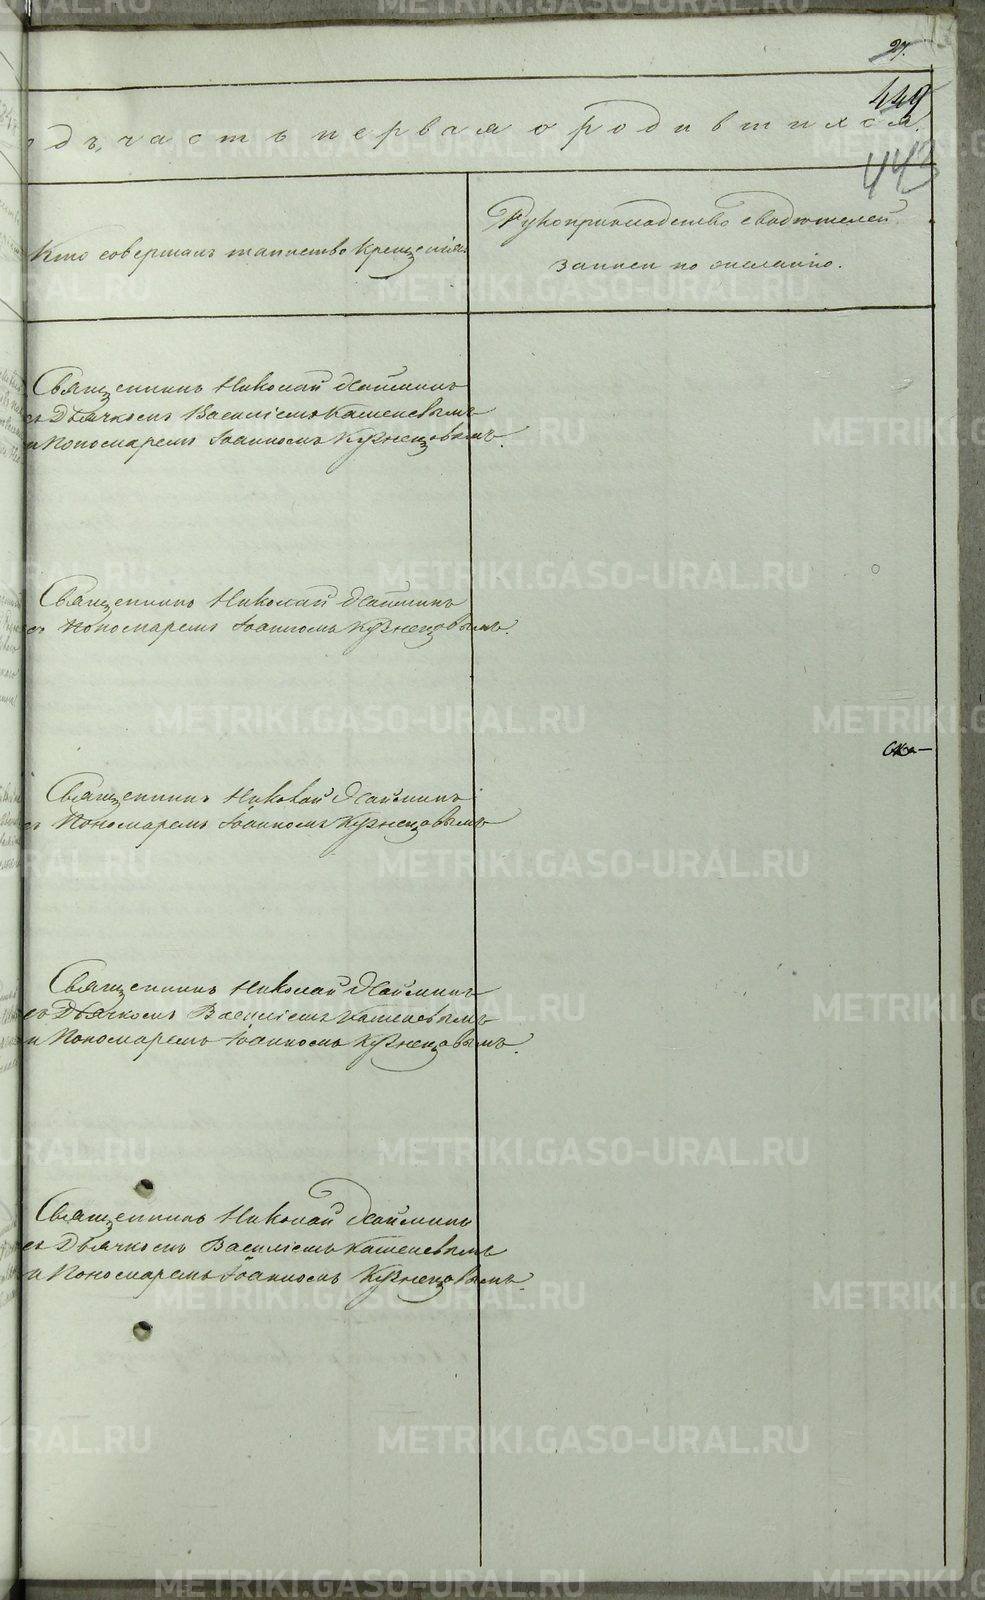 27.
449
443
одъ, часть первая о родившихся.
Кто совершалъ таинство Крещенія.
Рукоприкладство свидѣтелей
записи по желанію.
Священникъ Николай
съ Дьячкомъ Василіемъ Каменевымъ
и Пономаремъ Іоанномъ Кузнецовымъ.
Священникъ Николай
съ Пономаремъ Іоанномъ Кузнецовымъ.
Священникъ Николай
съ Пономаремъ Іоанномъ Кузнецовымъ
Священникъ Николай
съ Дьячкомъ Василіемъ Каменевымъ
и Пономаремъ Іоанномъ Кузнецовымъ.
Священникъ Николай
съ Дьячкомъ Василіемъ Каменевымъ
и Пономаремъ Іоанномъ Кузнецовымъ.
METRIKI.GASO-URAL.RU